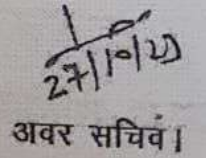 27/10/20
अवर सचिव।